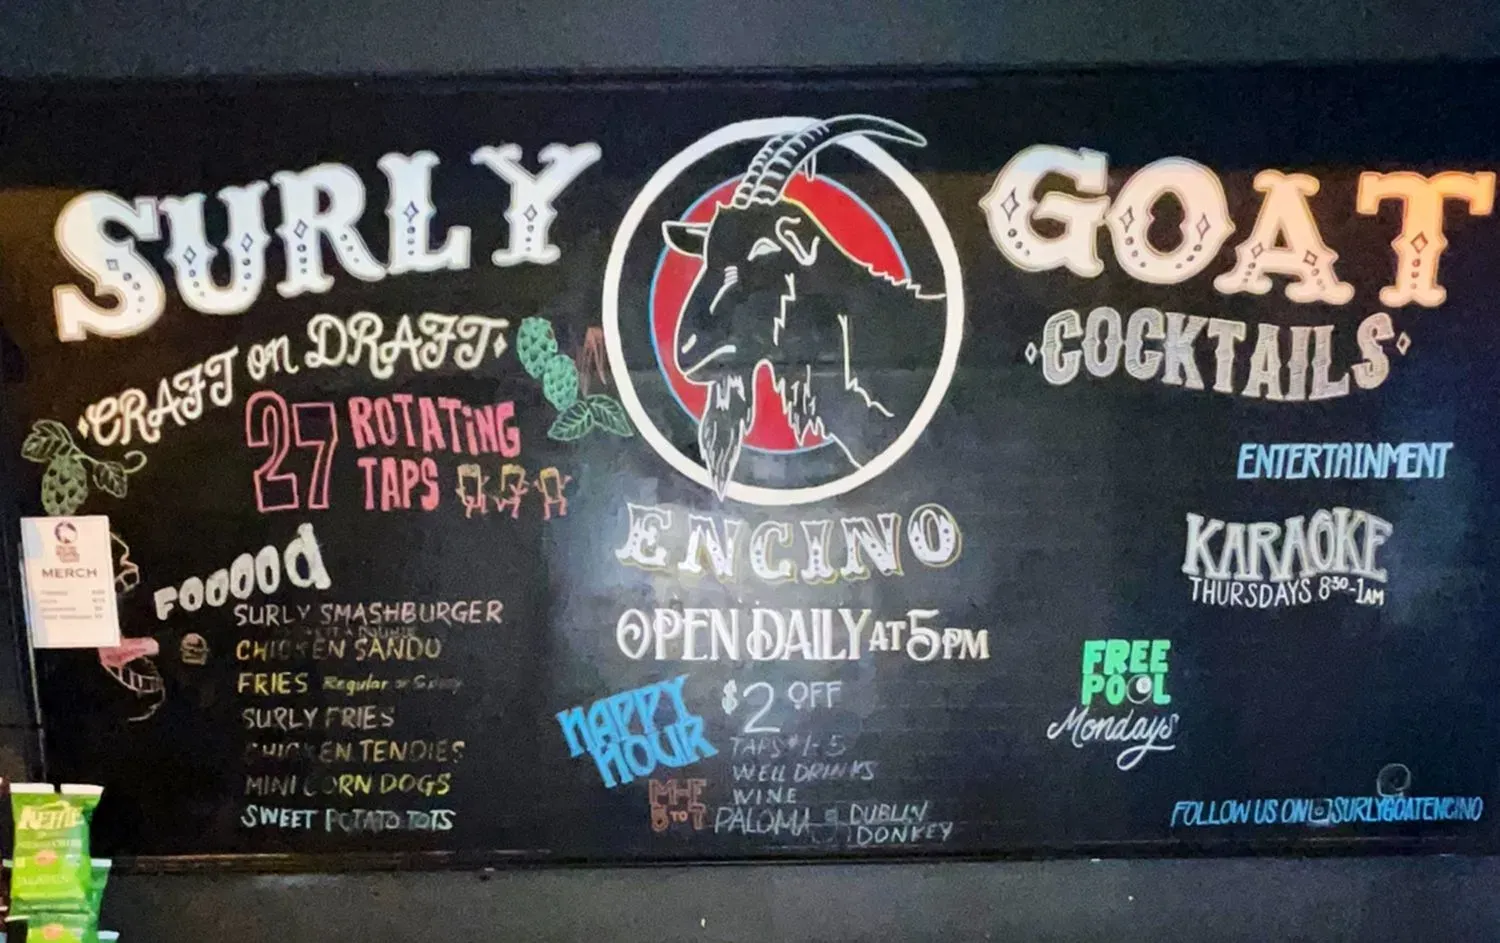 SURLY GOAT
CRAFT on DRAFT
27 ROTATING
TAPS
MERCH
FOOOOD
SURLY SMASHBURGER
CHICKEN SANDO
FRIES Regular or
SURLY FRIES
CHICKEN TENDIES
MINI CORN DOGS
SWEET POTATO TOTS
ENCINO
OPEN DAILY AT 5PM
HAPPY
HOUR
$2 OFF
TAPS #1-5
WELL DRINKS
WINE
PALOMA
DUBLIN
DONKEY
5 TO 7
COCKTAILS
ENTERTAINMENT
KARAOKE
THURSDAYS 8:30-1AM
FREE
POOL
Mondays
FOLLOW US ON SURLYGOATENCINO
KETTLE